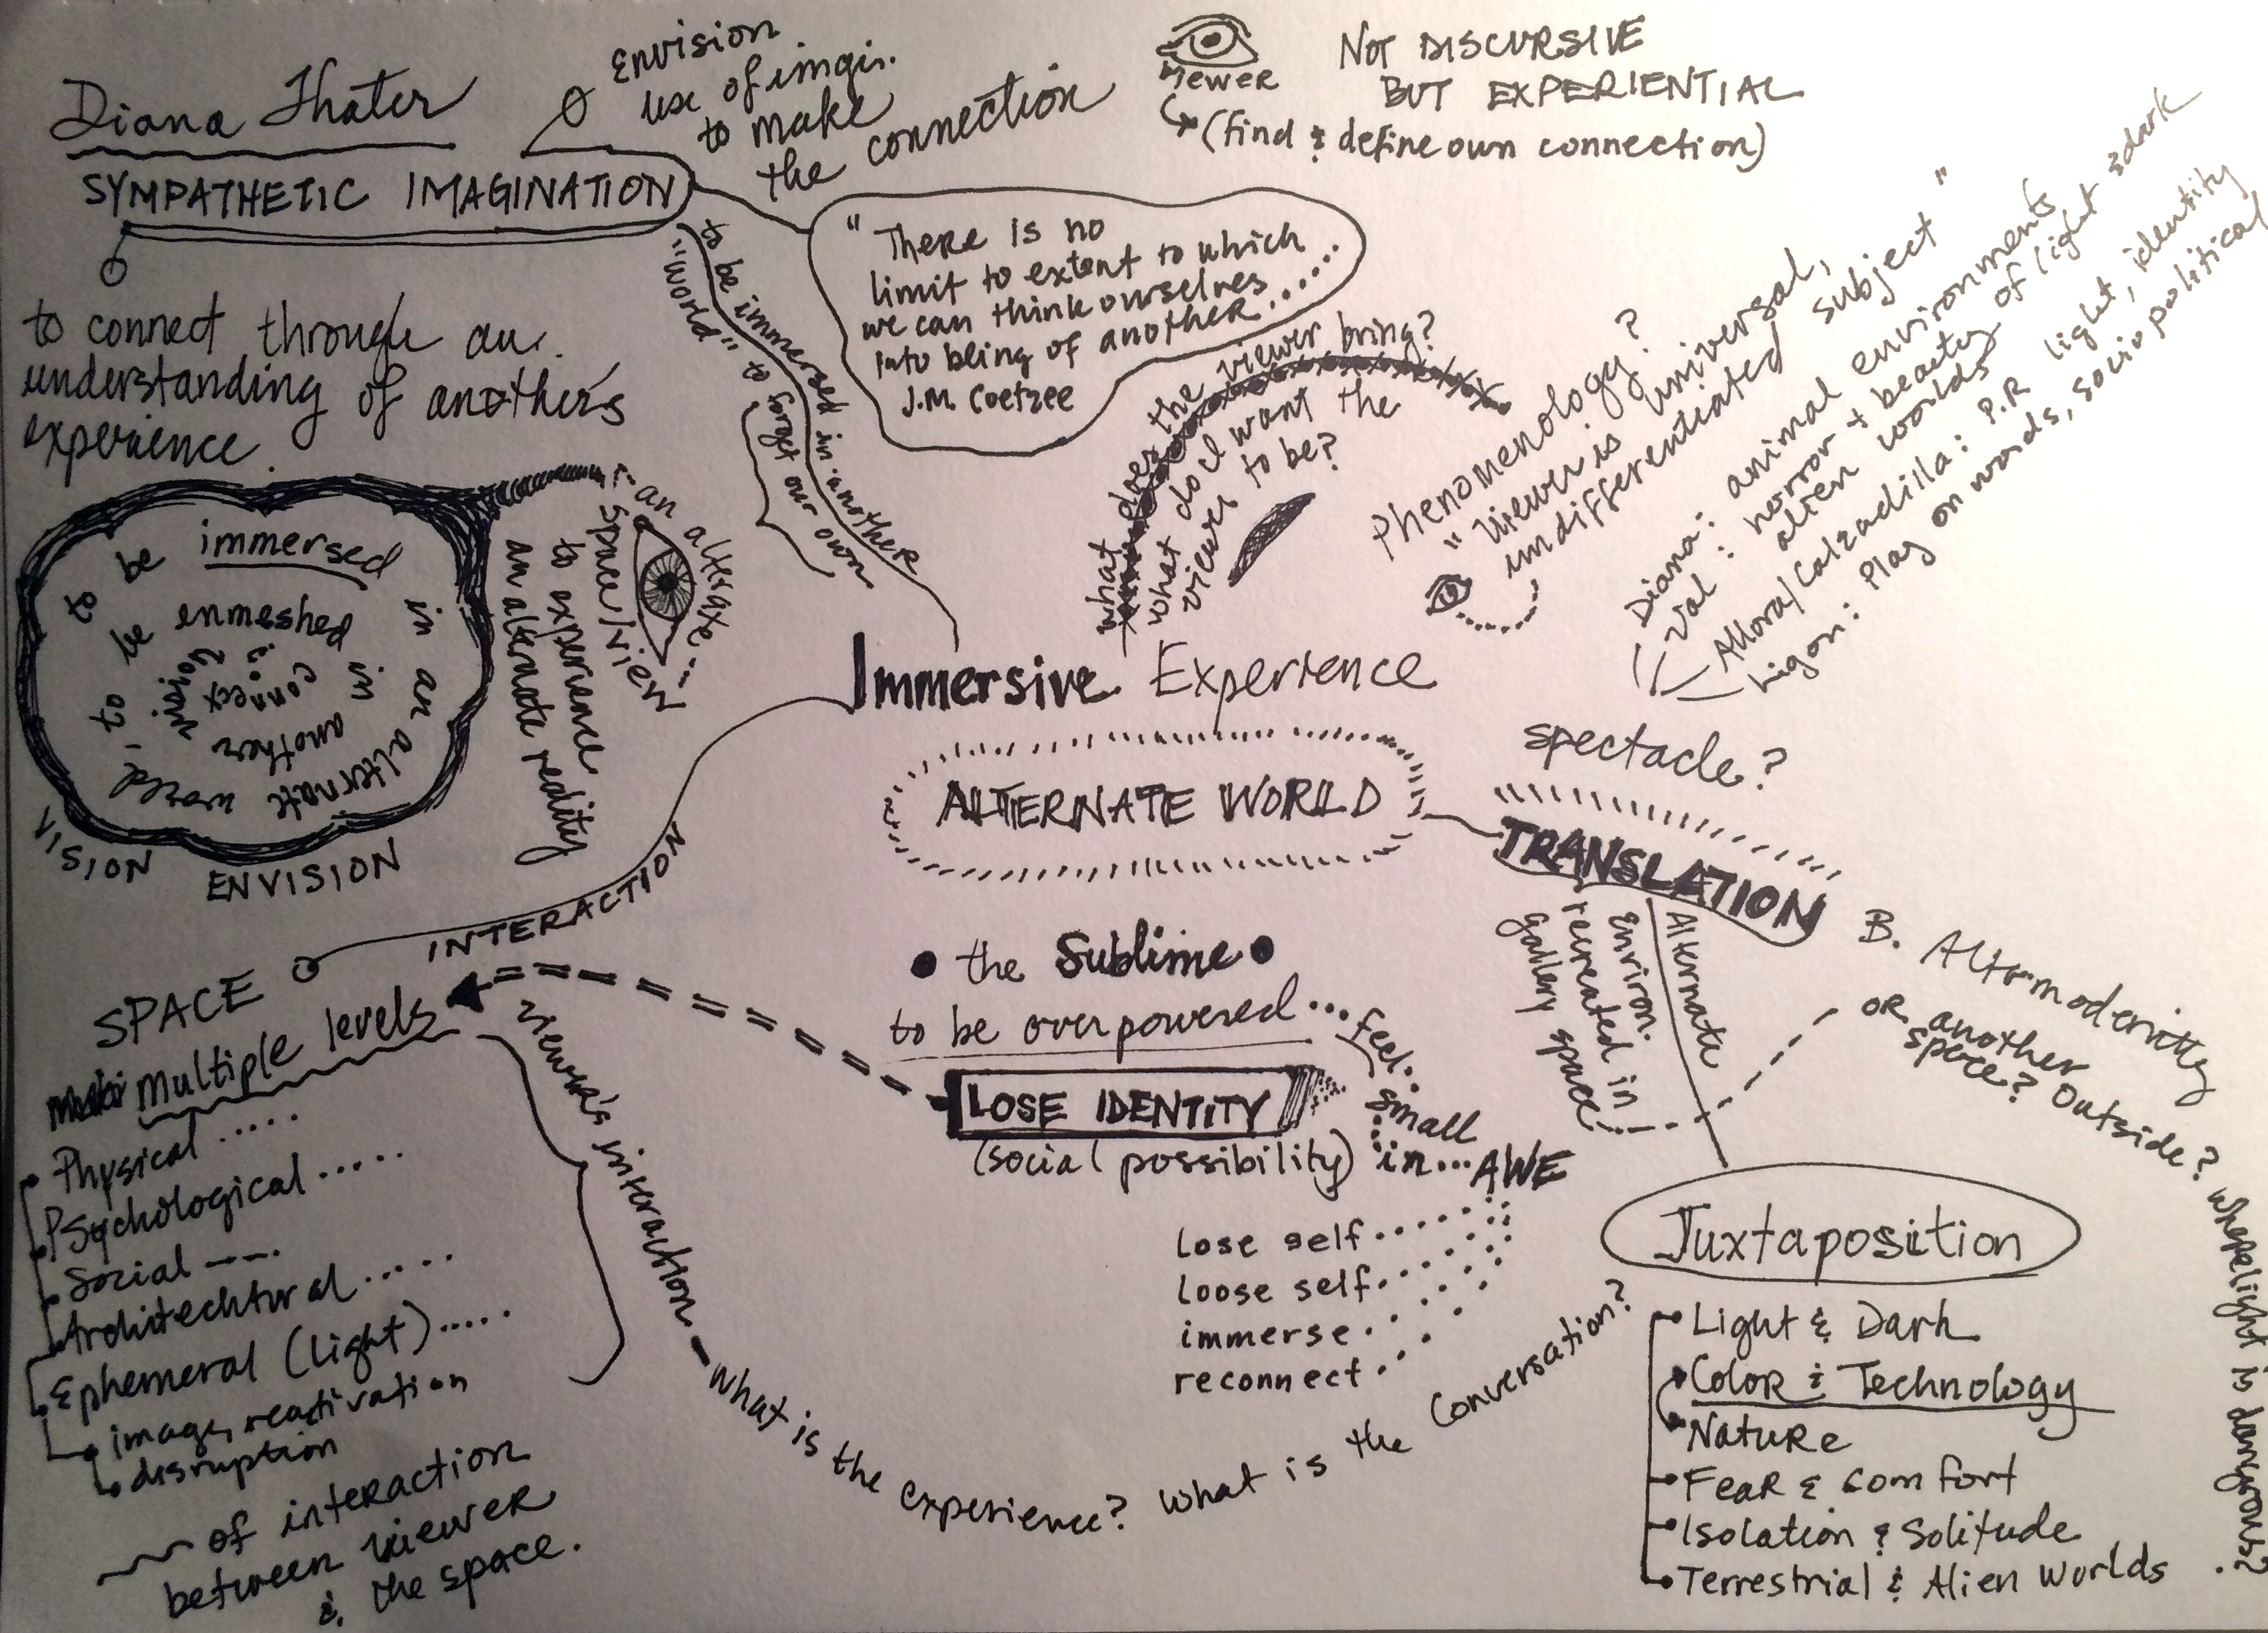 Diana Thater
SYMPATHETIC IMAGINATION
envision
use of imgi.
to make
the connection
Viewer
NOT DISCURSIVE
BUT EXPERIENTIAL
(find & define own connection)
"There is no
limit to extent to which
we can think ourselves
into being of another......
J.M. Coetzee
to be immersed in another
"world" to forget our own
to connect through an
understanding of another's
experience.
to be immersed in an alternate world,
to be enmeshed in another
vision
connect
VISION
ENVISION
an alternate...
space/view
to experience
an alternate reality
what does the viewer bring?
what do I want the
viewer to be?
Phenomenology?
"Viewer is universal,
undifferentiated subject"
Diana: animal environments
Val: horror + beauty of light & dark
alien worlds
Allora/Calzadilla: P.R light, identity
Ligon: Play on words, socio political
Immersive Experience
ALTERNATE WORLD
spectacle?
TRANSLATION
Alternate
Environ.
recreated in
gallery space
B. Altermodernity
OR another
space? Outside? where light is dangerous?
INTERACTION
SPACE
multiple levels
Physical .....
Psychological .....
Social ----
Architechtural .....
Ephemeral (light).....
image, reactivation
disruption
of interaction
between viewer
& the space.
viewer's interaction - what is the experience? what is the conversation?
the Sublime
to be overpowered... feel..
small
in... AWE
LOSE IDENTITY
(social possibility)
lose self
loose self
immerse
reconnect
Juxtaposition
Light & Dark
Color & Technology
Nature
Fear & comfort
Isolation & Solitude
Terrestrial & Alien Worlds